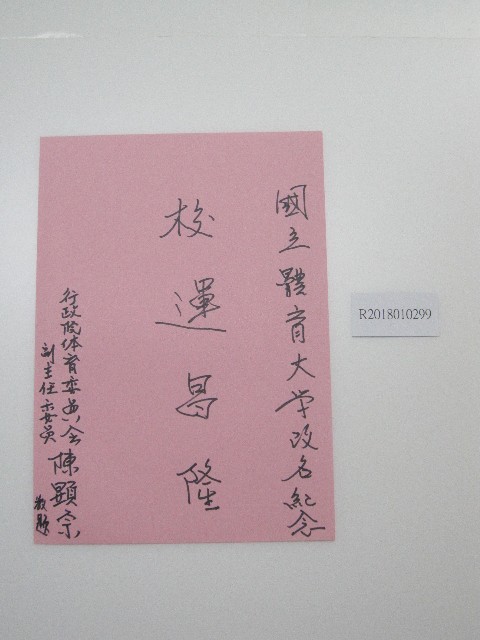 國立體育大学改名紀念
校運昌隆
行政院体育委員会陳顯宗
副主任委員
敬題
R2018010299